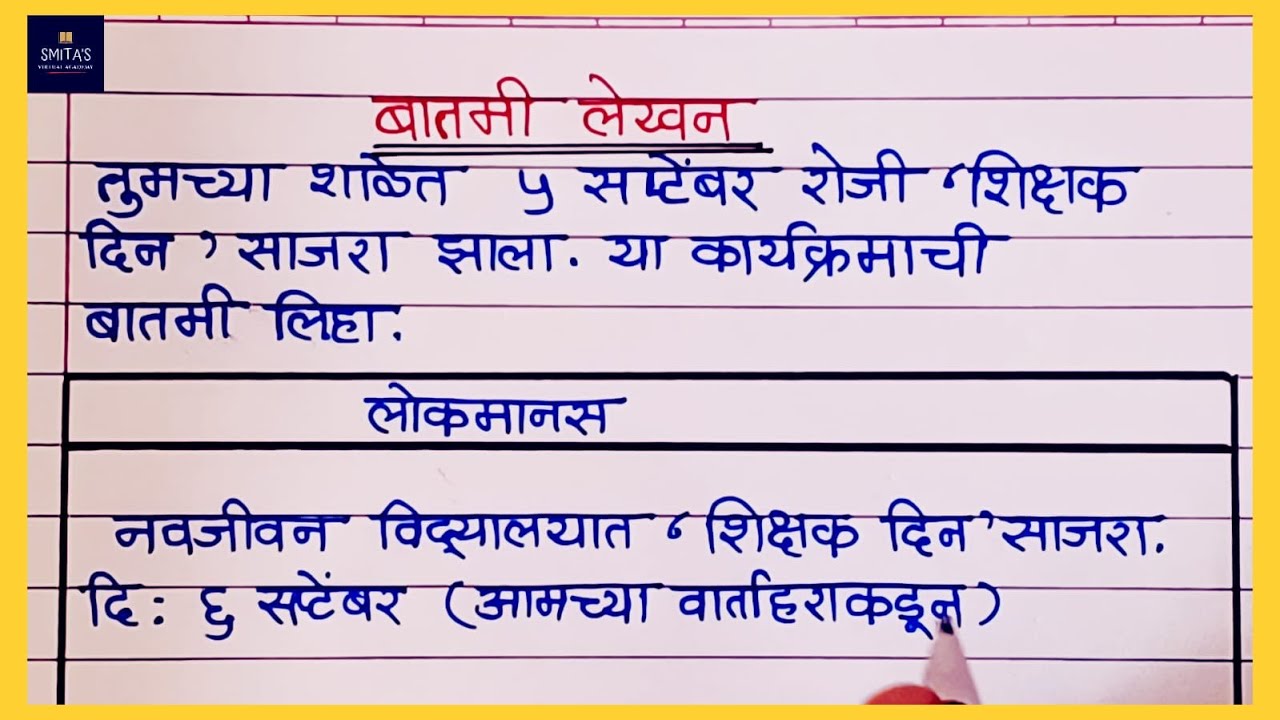 SMITA'S
VIRTUAL ACADEMY
बातमी लेखन
तुमच्या शाळेत ५ सप्टेंबर रोजी ‘शिक्षक
दिन’ साजरा झाला. या कार्यक्रमाची
बातमी लिहा.
लोकमानस
नवजीवन विद्यालयात ‘शिक्षक दिन’ साजरा.
दि: ६ सप्टेंबर (आमच्या वार्ताहराकडून)